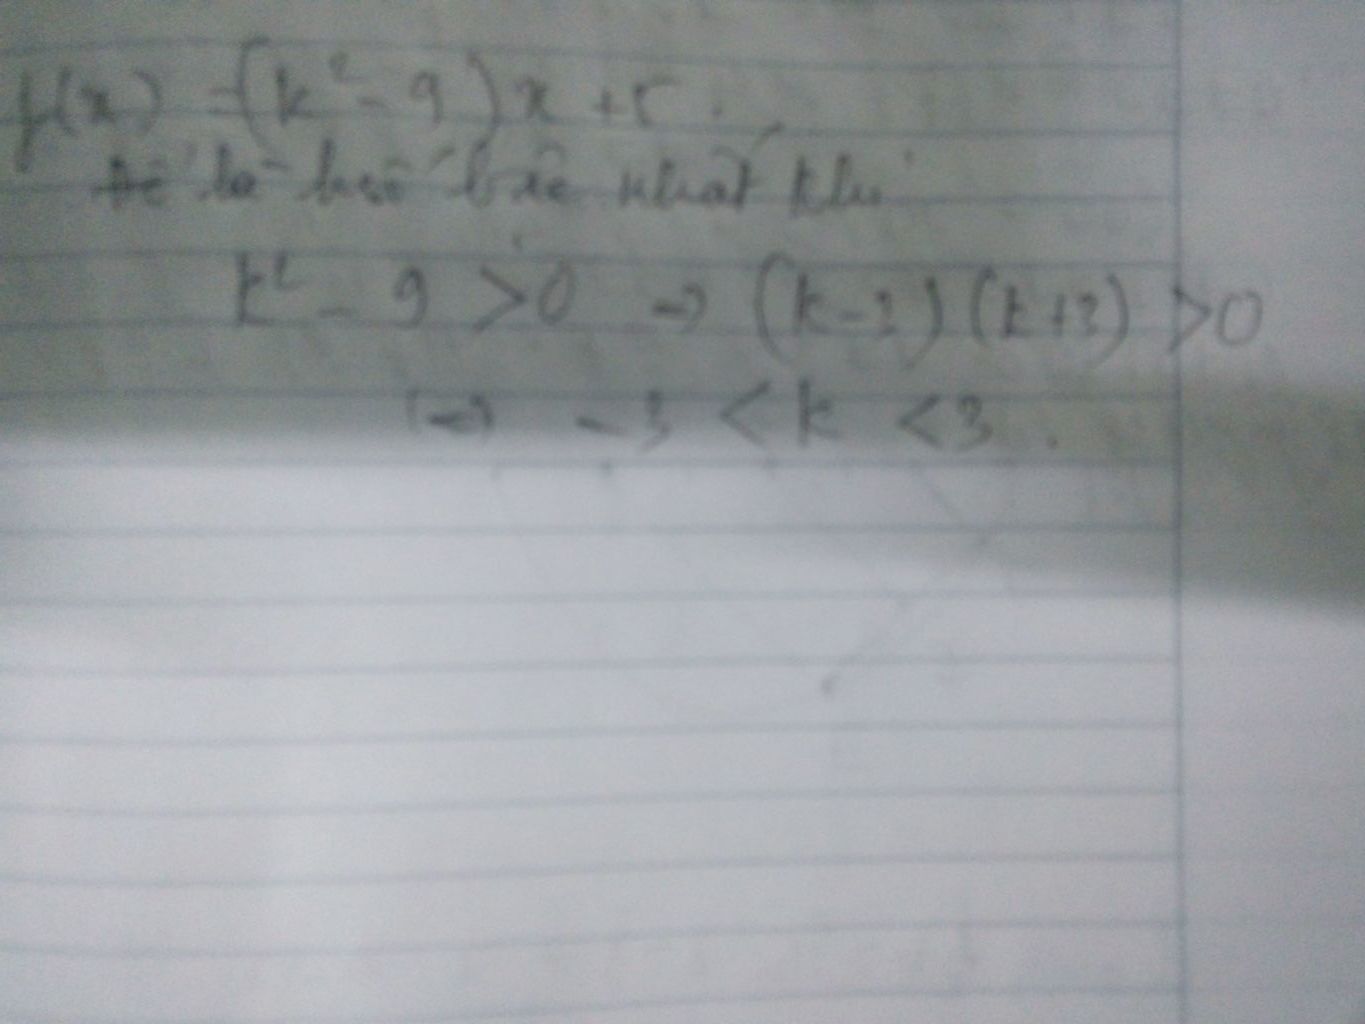 f(x) = (k² - 9)x + 5.
Để là hsố bậc nhất khi
k² - 9 > 0 → (k-3)(k+3) > 0
(→) -3 < k < 3.